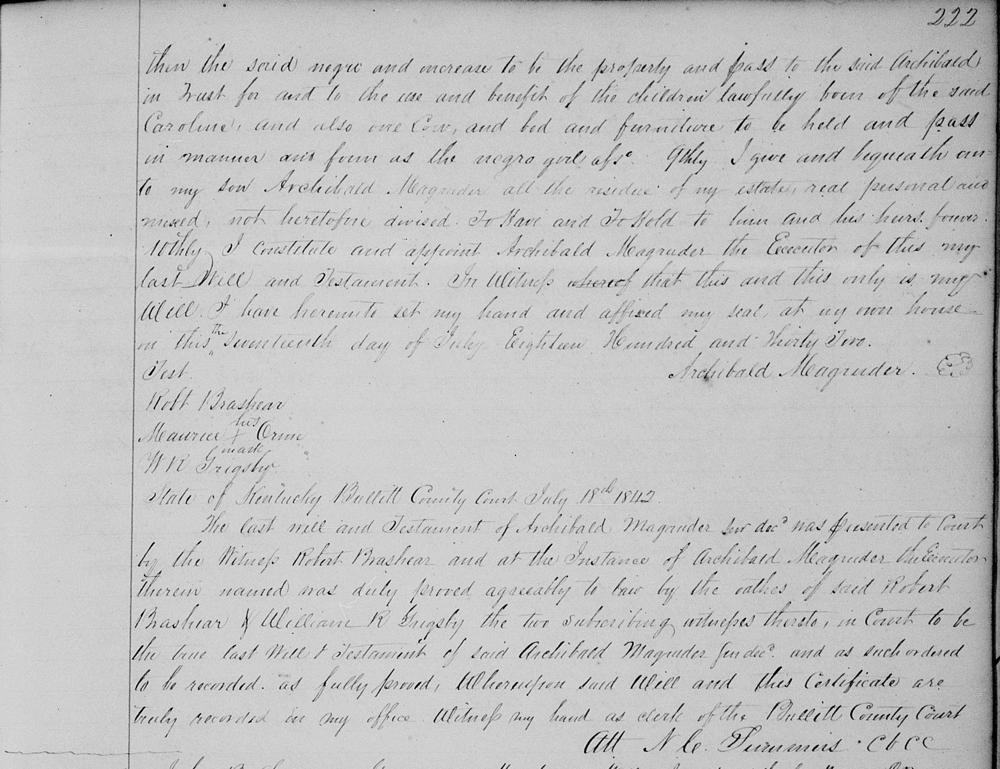 222
then the said negro and increase to be the property and pass to the said Archibald
in Trust for and to the use and benefit of the children lawfully born of the said
Caroline, and also one Cow, and bed and furniture to be held and pass
in manner and form as the negro girl afsd. 9thly I give and bequeath un
to my son Archibald Magruder all the residue of my estate, real personal and
mixed, not heretofore devised. To Have and To Hold to him and his heirs forever.
10thly I constitute and appoint Archibald Magruder the Executor of this my
last Will and Testament. In Witness whereof that this and this only is my
Will I have hereunto set my hand and affixed my seal, at my own house
on this the Seventeenth day of July Eighteen Hundred and Thirty Two.
Test. Archibald Magruder.
Robt Brashear
Maurice his X mark Orim
W R Grigsby
State of Kentucky Bullitt County Court July 18th 1842.
The last will and Testament of Archibald Magruder Senr decd was presented to Court
by the Witness Robert Brashear and at the Instance of Archibald Magruder the Executor
therein named was duly proved agreeably to law by the oathes of said Robert
Brashear & William R Grigsby the two subscribing witnesses thereto, in Court to be
the true last Will & Testament of said Archibald Magruder Sen decd. and as such ordered
to be recorded. as fully proved, Whereupon said Will and this Certificate are
truly recorded in my office. Witness my hand as clerk of the Bullitt County Court
Att N. C. Summers. C B C C